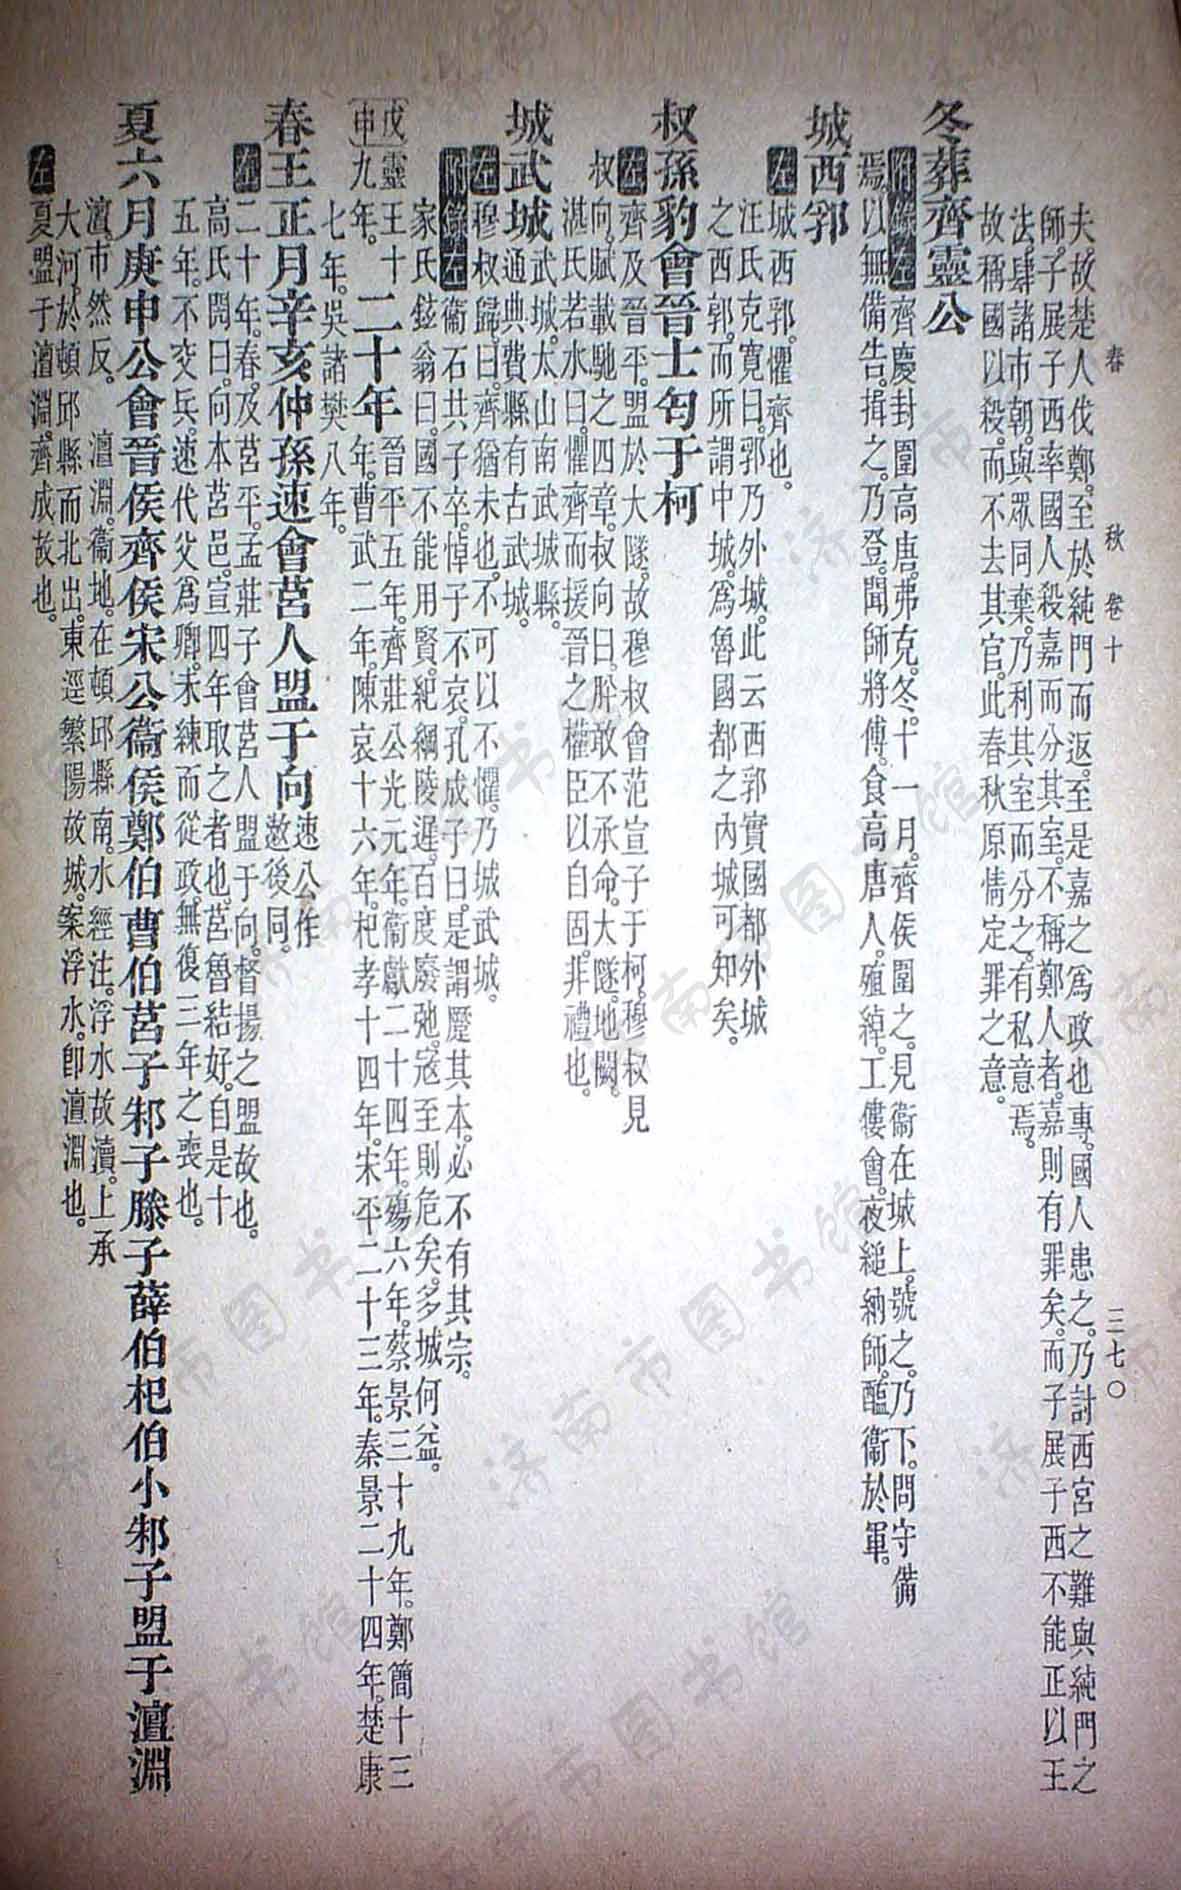 春秋 卷十 三七〇
夫故楚人伐鄭。至於純門而返。至是嘉之爲政也專。國人患之。乃討西宮之難與純門之
師。子展子西率國人殺嘉而分其室。不稱鄭人者。嘉則有罪矣。而子展子西不能正以王
法。肆諸市朝。與眾同棄。乃利其室而分之。有私意焉。
故稱國以殺。而不去其官。此春秋原情定罪之意。
冬葬齊靈公
附錄左 齊慶封圍高唐。弗克。冬。十一月。齊侯圍之。見衞在城上。號之。乃下。問守備
焉。以無備告。揖之。乃登。聞師將傅。食高唐人。殖綽。工僂會。夜縋納師。醢衞於軍。
城西郛
左 城西郛。懼齊也。
汪氏克寬曰。郛乃外城。此云西郛。實國都外城
之西郛。而所謂中城。爲魯國都之內城可知矣。
叔孫豹會晉士匄于柯
左 齊及晉平。盟於大隧。故穆叔會范宣子于柯。穆叔見
叔向。賦載馳之四章。叔向曰。肸敢不承命。大隧。地闕。
湛氏若水曰。懼齊而援晉之權臣以自固。非禮也。
城武城
武城。太山南武城縣。
通典。費縣有古武城。
左 穆叔歸。曰。齊猶未也。不可以不懼。乃城武城。
附錄左 衞石共子卒。悼子不哀。孔成子曰。是謂蹷其本。必不有其宗。
家氏鉉翁曰。國不能用賢。紀綱陵遲。百度廢弛。寇至則危矣。多城何益。
戊申
靈王十九年。
二十年
晉平五年。齊莊公光元年。衞獻二十四年。殤六年。蔡景三十九年。鄭簡十三
年。曹武二年。陳哀十六年。杞孝十四年。宋平二十三年。秦景二十四年。楚康
七年。吳諸樊八年。
春王正月辛亥仲孫速會莒人盟于向
速公作
遬後同。
左 二十年。春。及莒平。孟莊子會莒人盟于向。督揚之盟故也。
高氏閌曰。向本莒邑。宣四年取之者也。莒魯結好。自是十
五年。不交兵。速代父爲卿。未練而從政。無復三年之喪也。
夏六月庚申公會晉侯齊侯宋公衞侯鄭伯曹伯莒子邾子滕子薛伯杞伯小邾子盟于澶淵
澶。市然反。 澶淵。衞地。在頓邱縣南。水經注。浮水故瀆。上承
大河。於頓邱縣而北出。東逕繁陽故城。案浮水。卽澶淵也。
左 夏盟于澶淵。齊成故也。